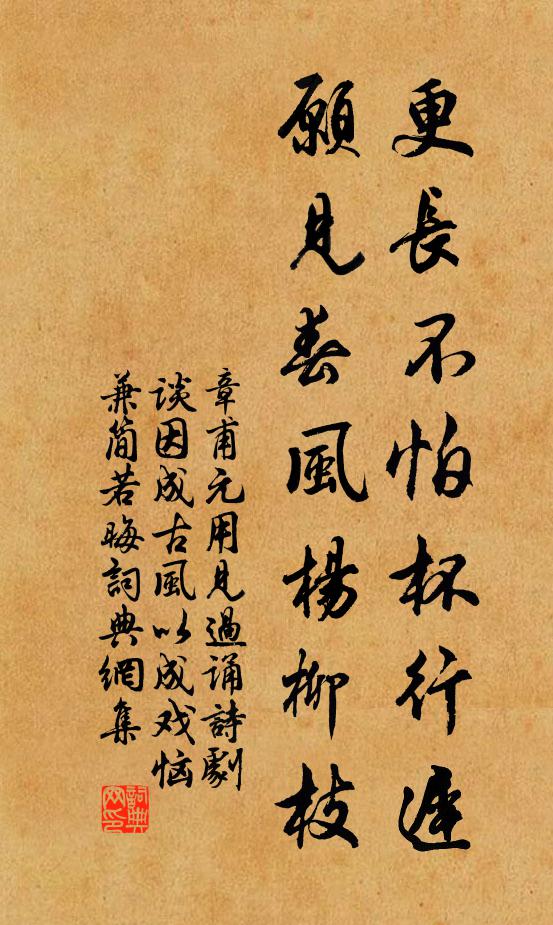 更長不怕杯行遲
願見春風楊柳枝
章甫元用見過誦詩劇
談因成古風以成戏恼
兼简若晦詞典網集
詞典
网印